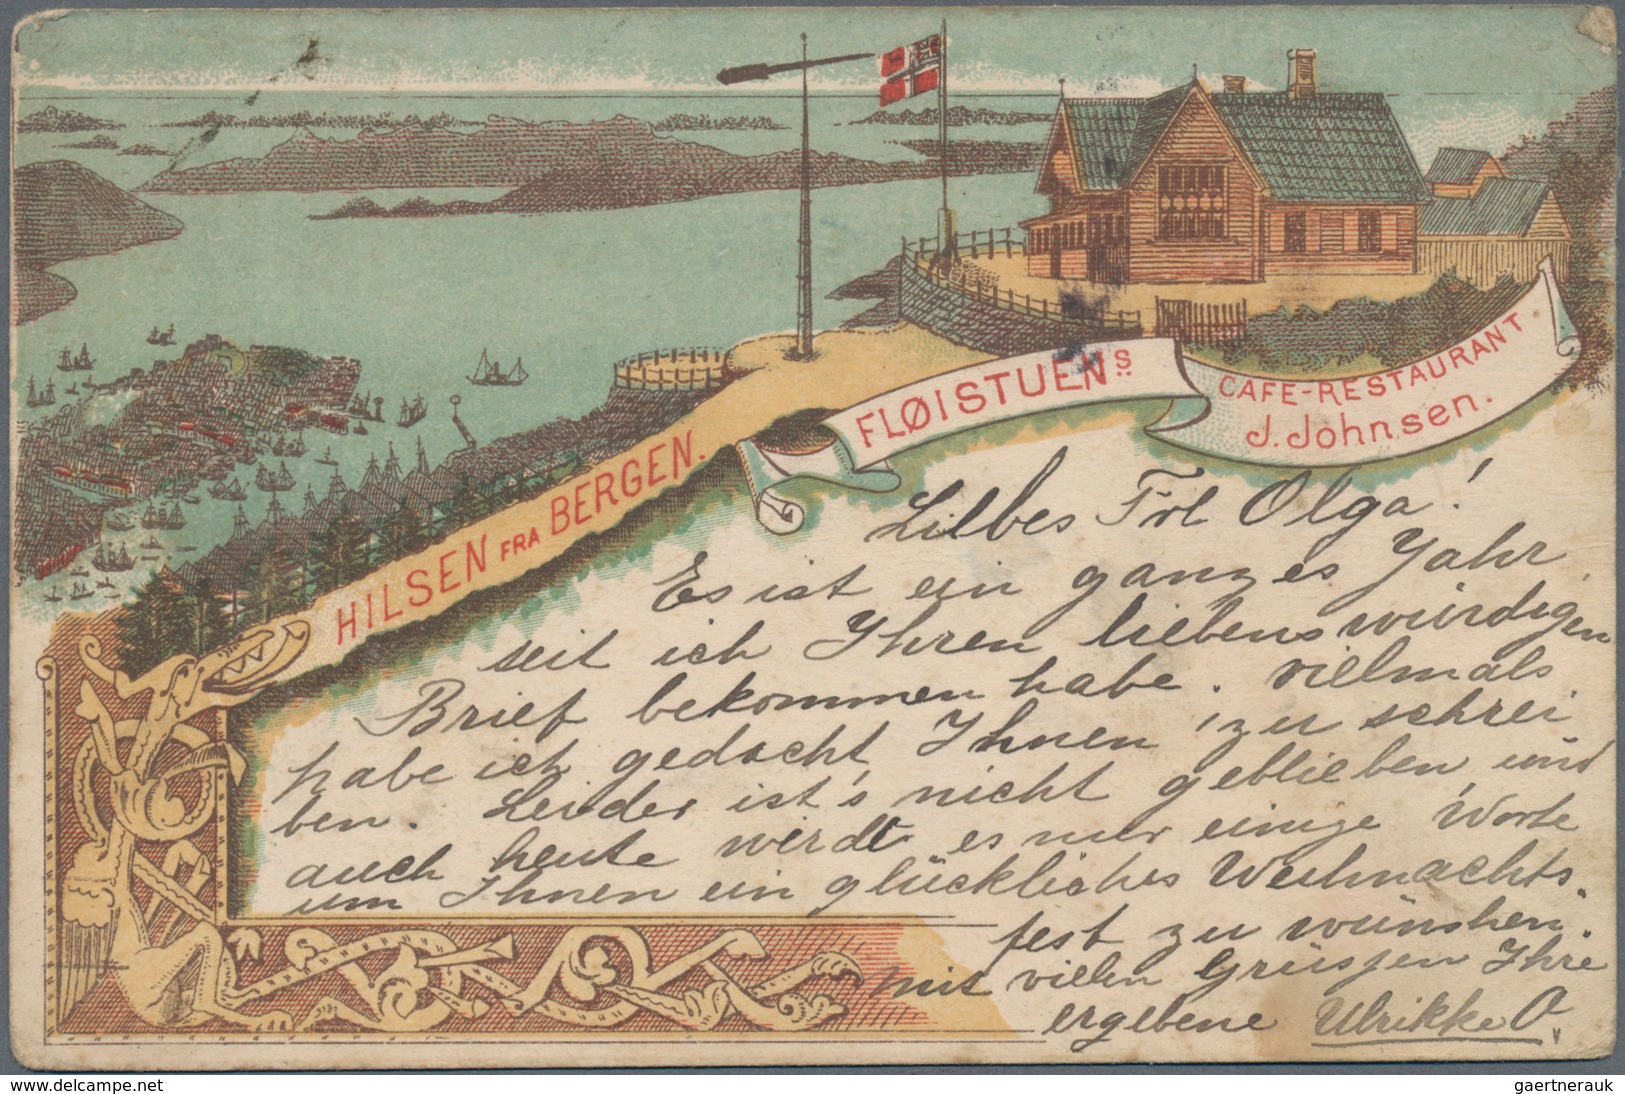 HILSEN FRA BERGEN.
FLØISTUENS
CAFE-RESTAURANT
J. Johnsen.
Lilbes Frl Olga!
Es ist ein ganzes Jahr,
seit ich Ihren liebenswürdigen
Brief bekommen habe. vielmals
habe ich gedacht Ihnen zu schrei
ben. Leider ist's nicht geblieben und
auch heute wird es nur einige Worte
um Ihnen ein glückliches Weihnachts-
fest zu wünshen.
mit vielen Grüssen Ihre
ergebene Ulrikke O.
delcampe.net
gaertnerauk